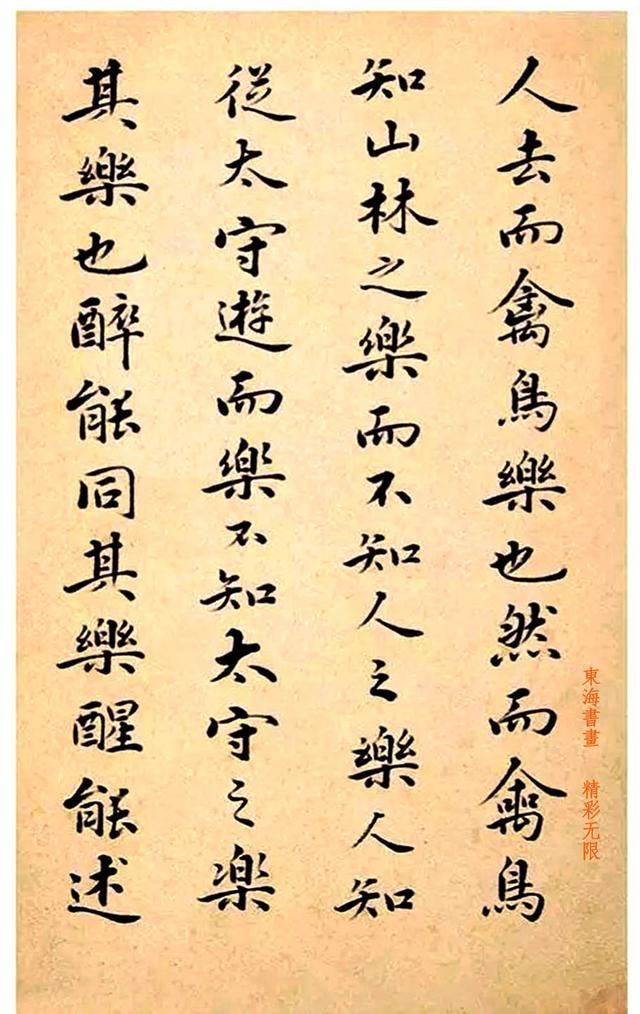 人去而禽鳥樂也然而禽鳥
知山林之樂而不知人之樂人知
從太守遊而樂不知太守之樂
其樂也醉能同其樂醒能述
東海書畫 精彩无限